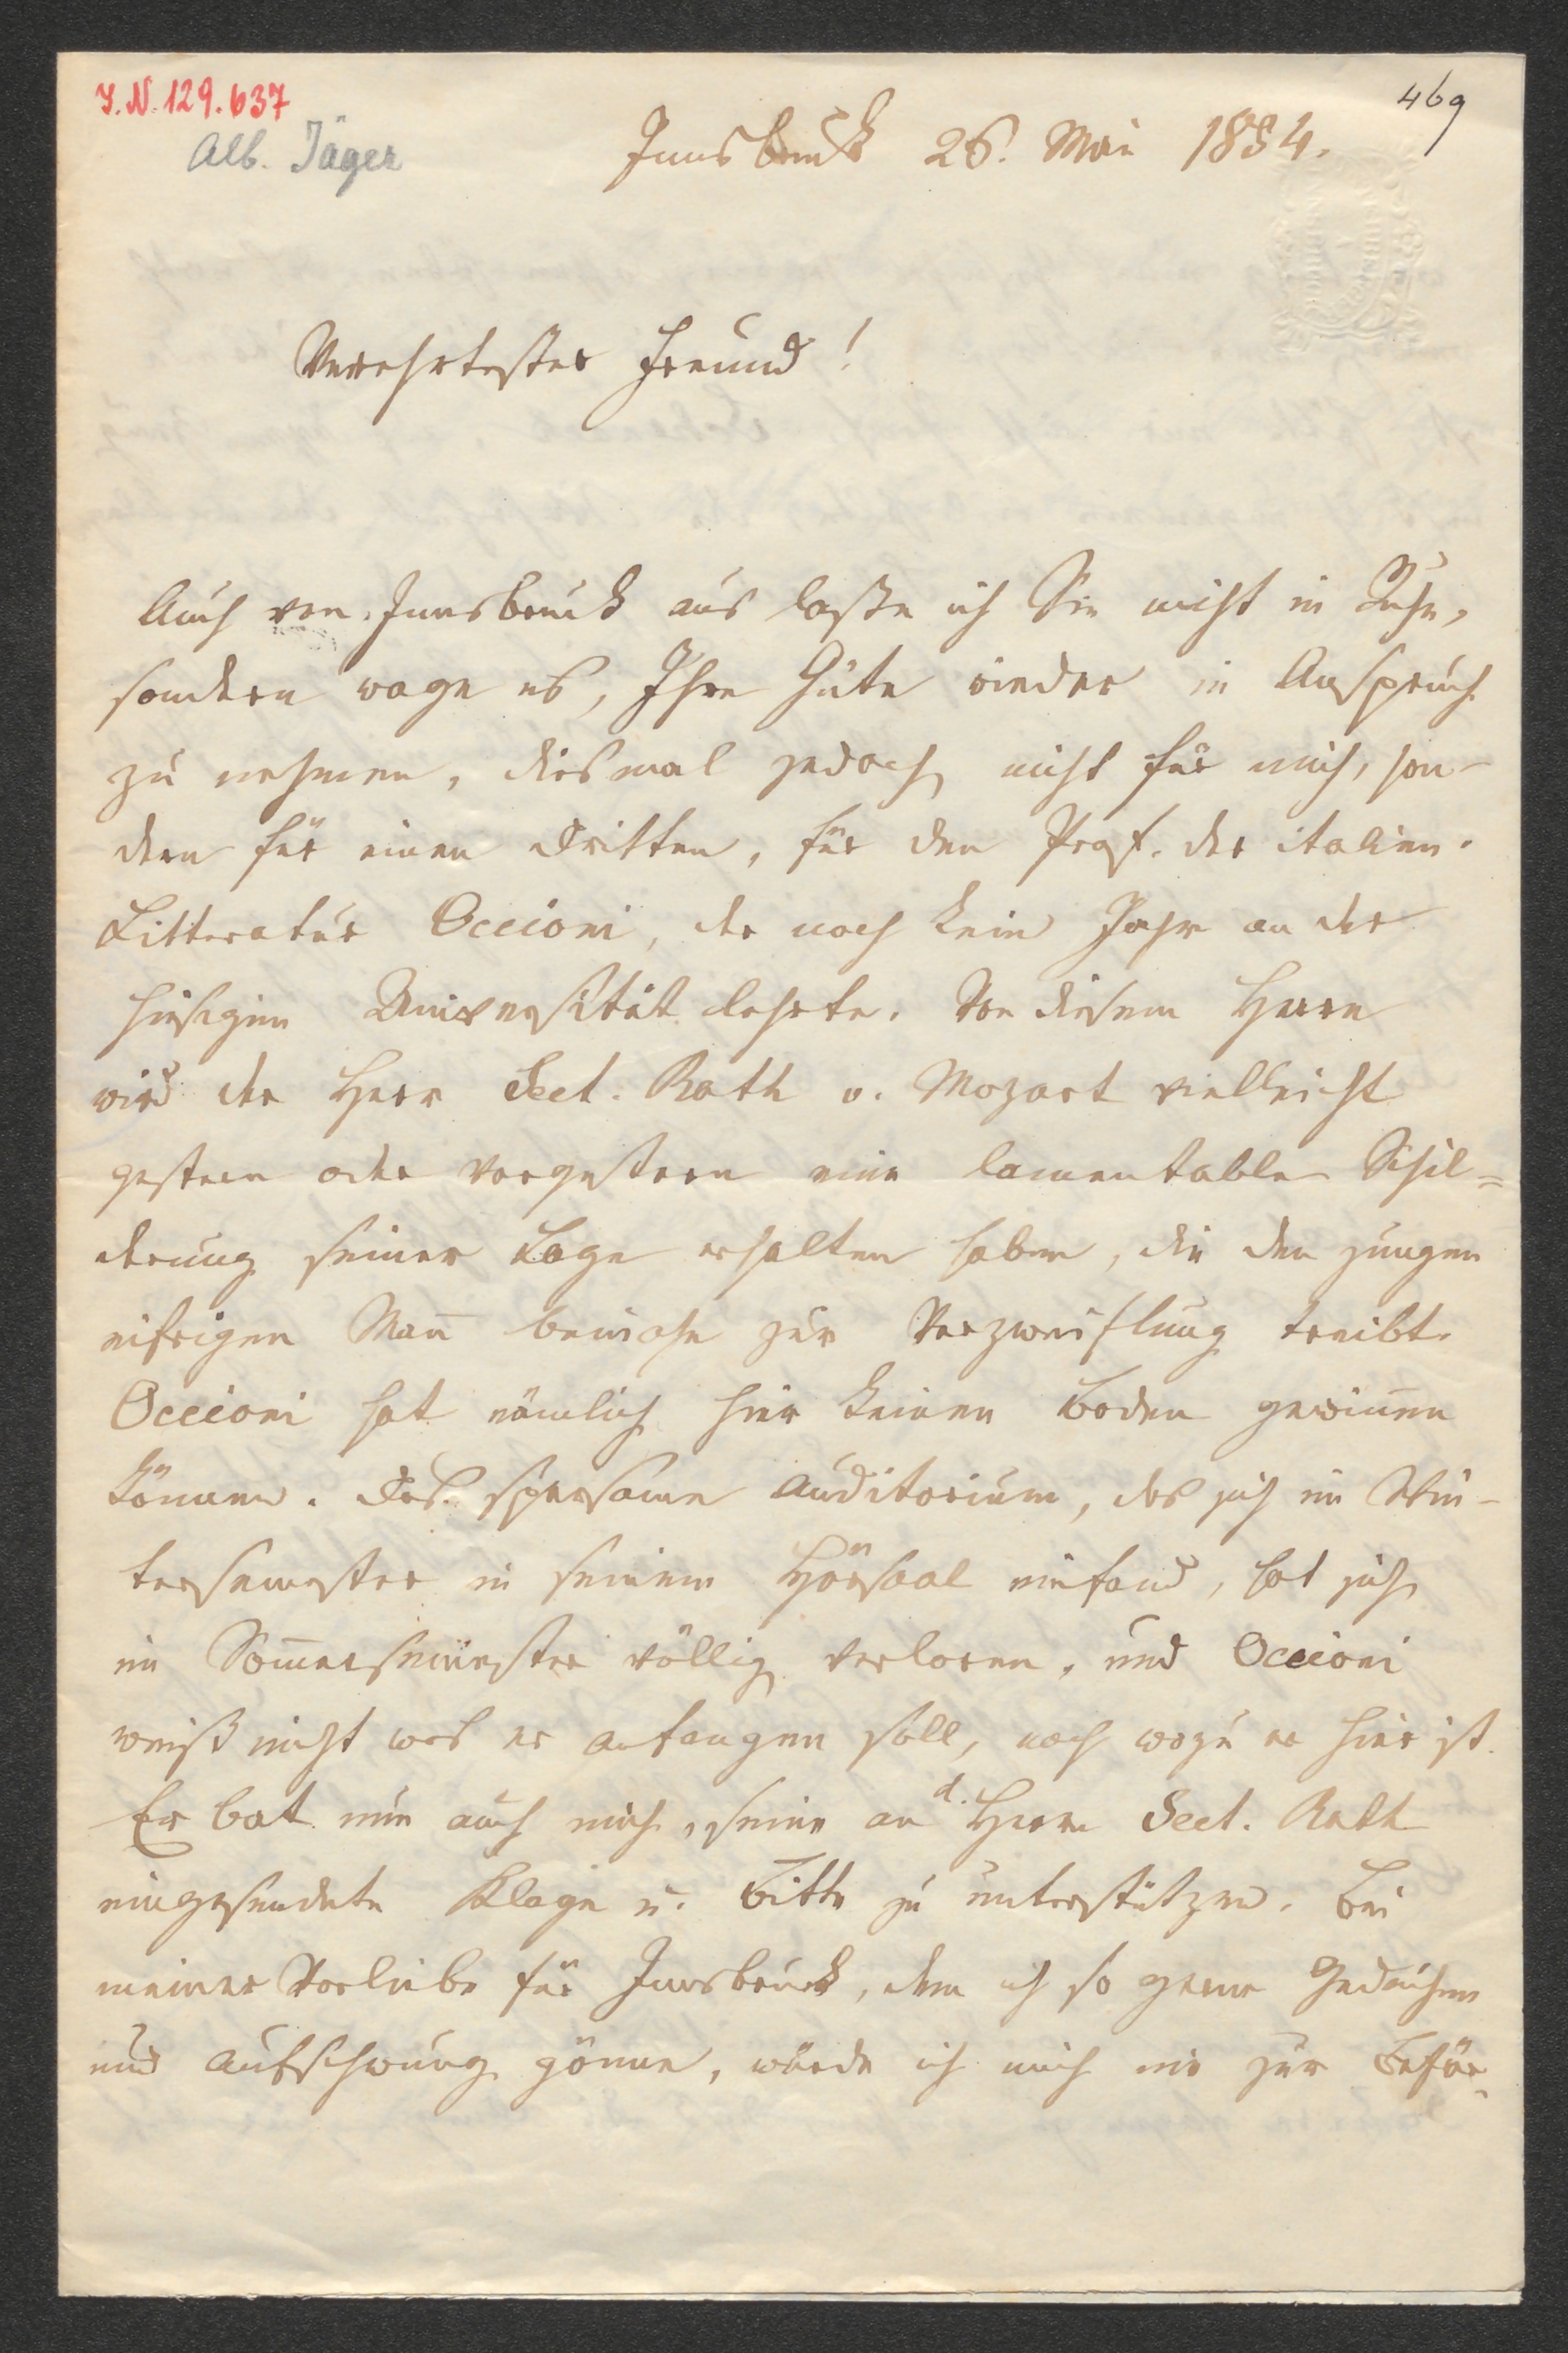 I.N. 129.637
469
Alb. Jäger
Innsbruck 26. Mai 1854.
Verehrtester Freund!
Auch von Innsbruck aus laße ich Sie nicht in Ruhe,
sondern wage es, Ihre Güte wieder in Anspruch
zu nehmen, diesmal jedoch nicht für mich, son-
dern für einen Dritten, für den Prof. der italien.
Litteratur Occioni, der noch kein Jahr an der
hiesigen Universität lehrte. Von diesem Herrn
wird der Herr Sect. Rath v. Mozart vielleicht
gestern oder vorgestern eine lamentable Schil=
derung seiner Lage erhalten haben, die den jungen
eifrigen Man̅ beinahe zur Verzweiflung treibt.
Occioni hat nämlich hier keinen Boden gewin̅en
können. Das sparsame Auditorium, das sich im Win-
tersemester in seinem Hörsaal einfand, hat sich
im Som̅ersemester völlig verloren, und Occioni
weiß nicht was er anfangen soll, noch wozu er hier ist.
Er bat nun auch mich, seine an d. Herrn Sect. Rath
eingesendete Klage u. Bitte zu unterstützen. Bei
meiner Vorliebe für Innsbruck, dem ich so gerne Gedeihen
und Aufschwung gönne, würde ich mich nie zur Befür-